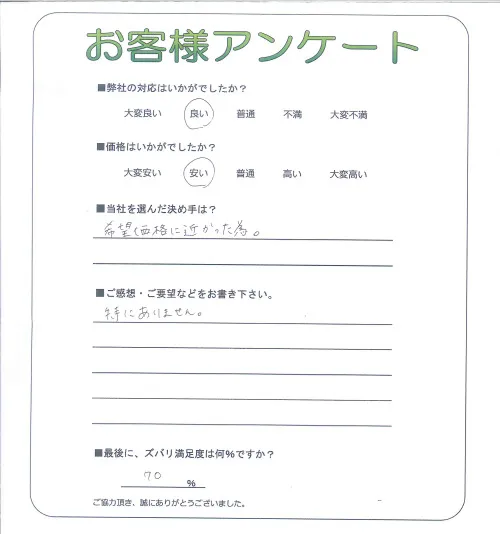 お客様アンケート
■弊社の対応はいかがでしたか？
大変良い 良い 普通 不満 大変不満
■価格はいかがでしたか？
大変安い 安い 普通 高い 大変高い
■当社を選んだ決め手は？
希望価格に近かった為。
■ご感想・ご要望などをお書き下さい。
特にありません。
■最後に、ズバリ満足度は何％ですか？
70 ％
ご協力頂き、誠にありがとうございました。